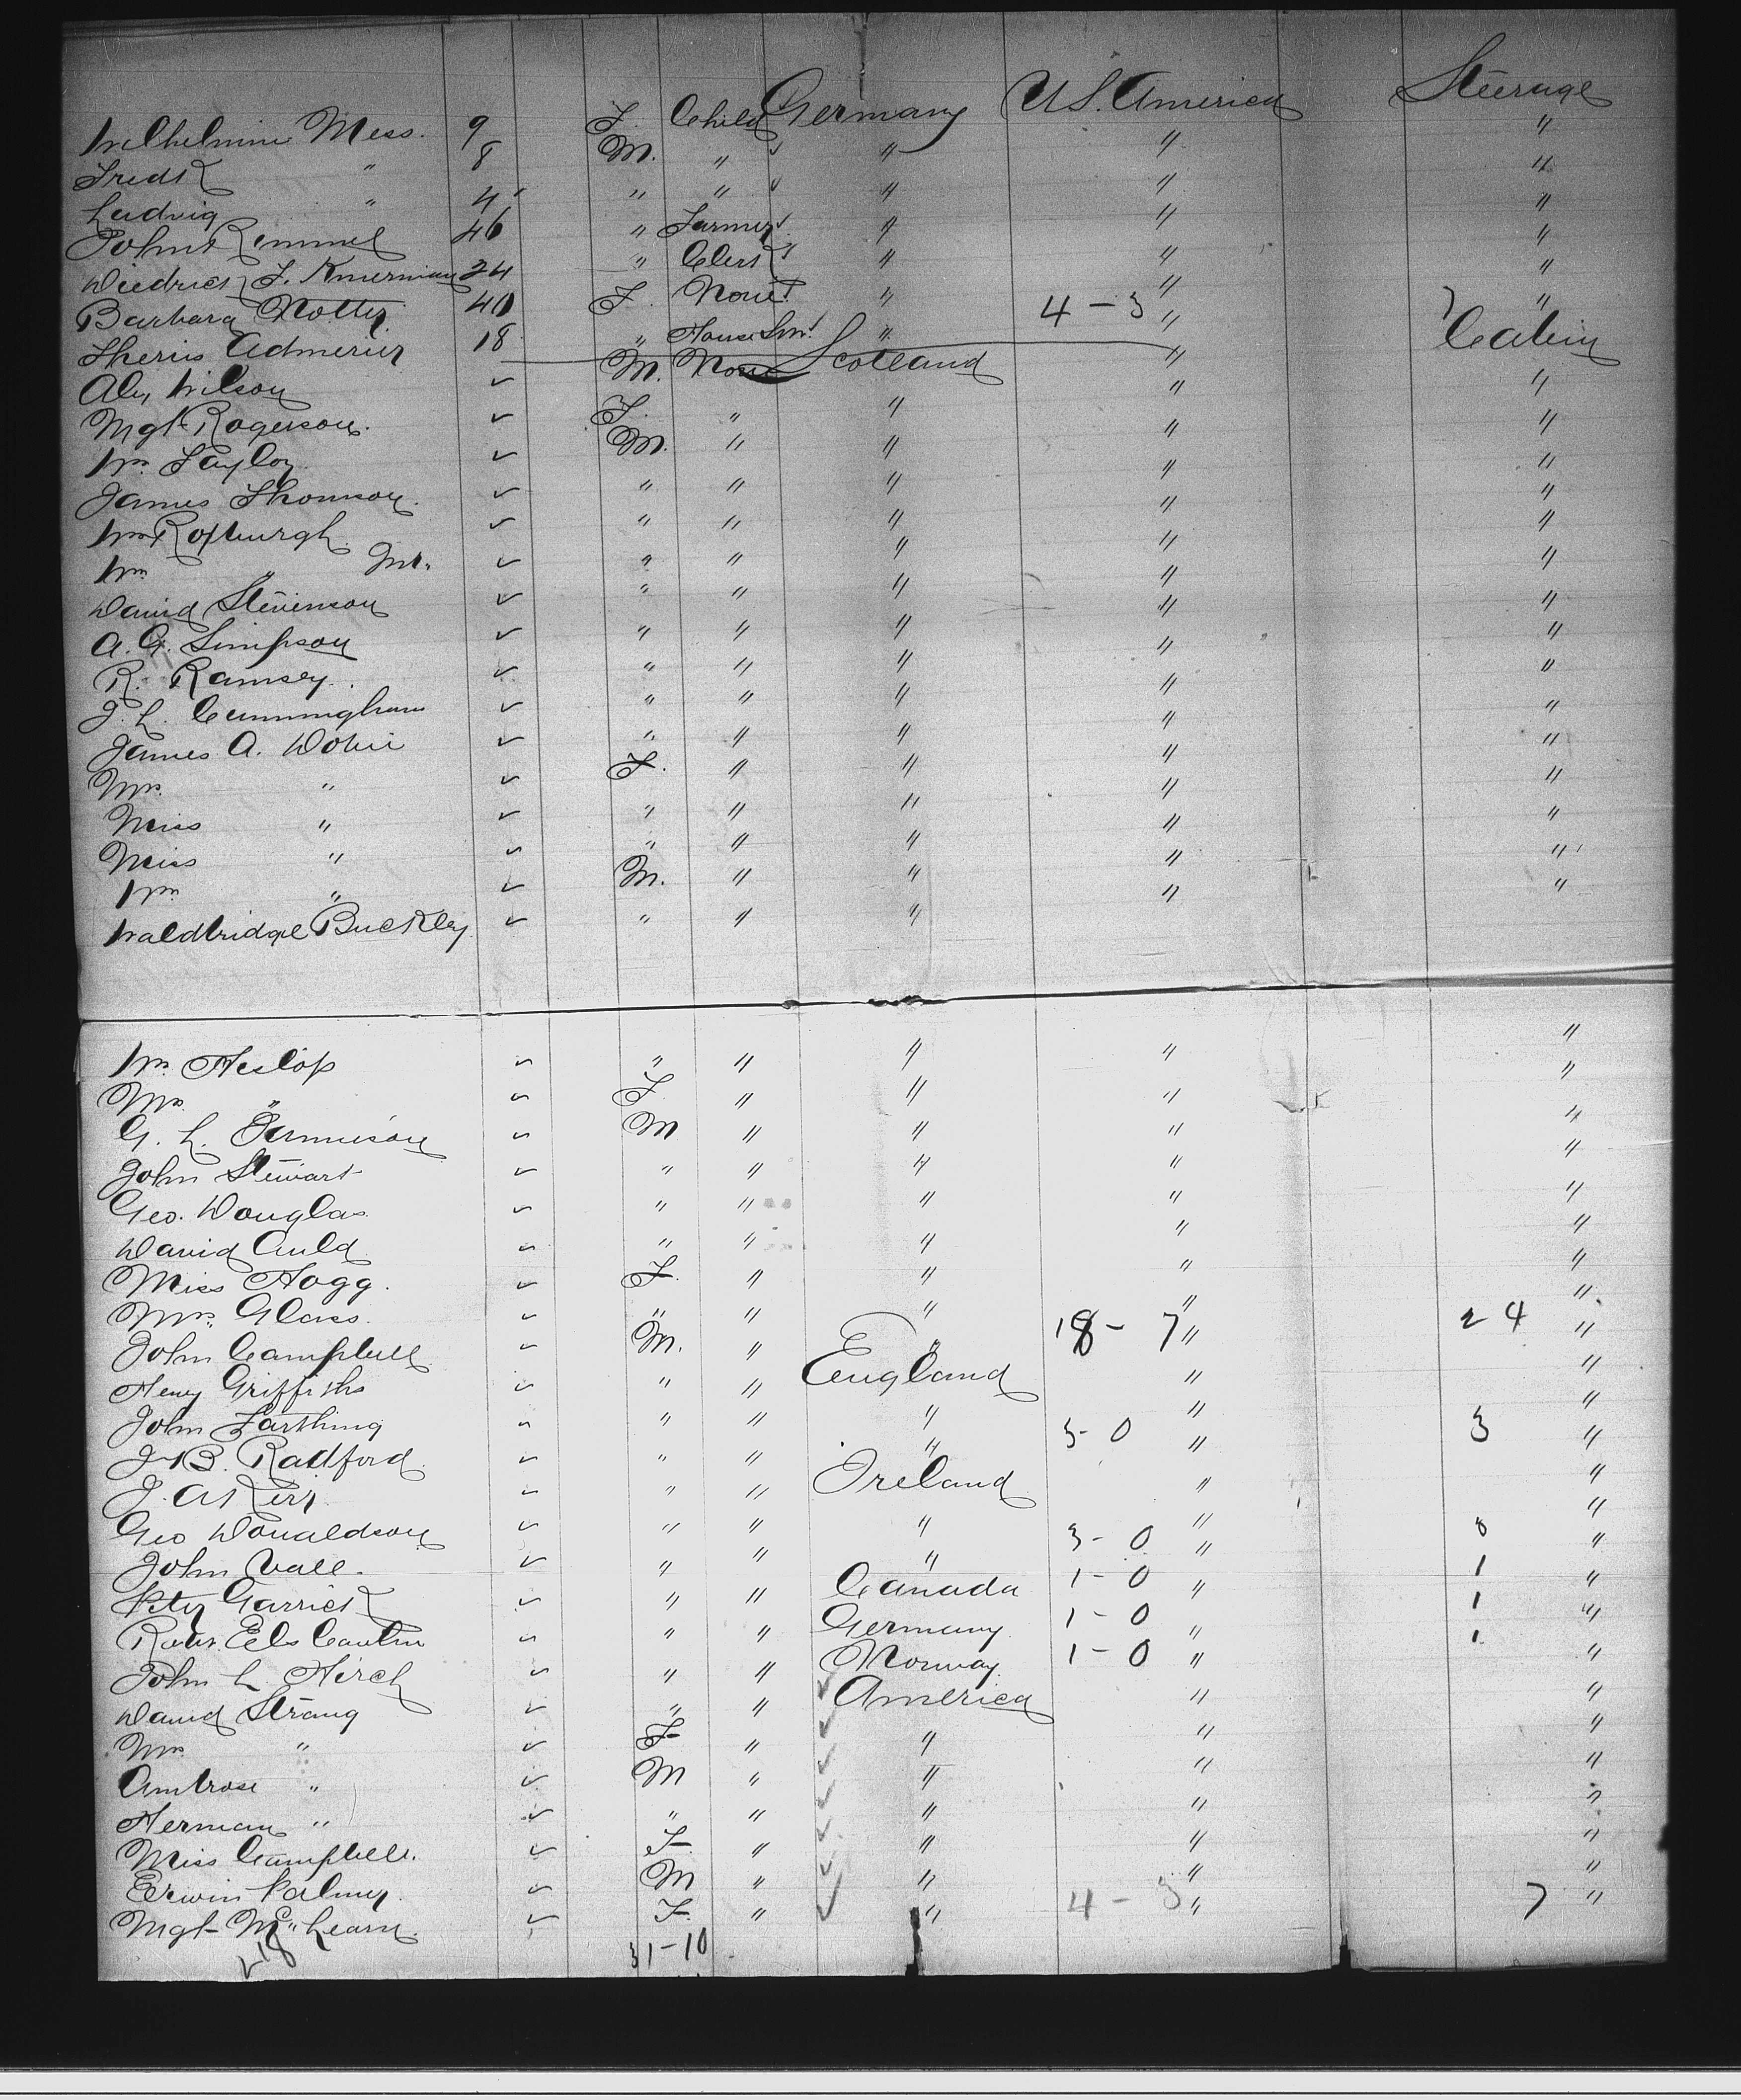 Wilhelmine Mess. 9 F. Child Germany U.S. America Steerage
Fredk " 8 M. " " " "
Ludvig " 4 " " " " "
John Remmel 46 " Farmer " " "
Diedrick F. 24 " Clerk " " "
Barbara 40 F. None " " "
18 " House Srvt " 4-3 " 7 "
Alex Wilson ✓ M. None Scotland " Cabin
Mgt Rogerson. ✓ F. " " " "
Wm Taylor ✓ M. " " " "
James Thomson. ✓ " " " " "
Wm Roxburgh ✓ " " " " "
Wm " Jnr. ✓ " " " " "
David Stevenson ✓ " " " " "
A. G. Simpson ✓ " " " " "
R. Ramsey. ✓ " " " " "
J. L. Cunningham ✓ " " " " "
James A. ✓ " " " " "
Mrs. " ✓ F. " " " "
Miss " ✓ " " " " "
Miss " ✓ " " " " "
Wm " ✓ M. " " " "
Waldbridge Buckley ✓ " " " " "
Wm Heslop ✓ " " " " "
Mrs " ✓ F. " " " "
G. L. Jamieson ✓ M " " " "
John Stewart ✓ " " " " "
Geo. Douglas ✓ " " " " "
David Auld ✓ " " " " "
Miss Hogg. ✓ F. " " " "
Mrs. Glass. ✓ " " " " "
John Campbell ✓ M. " " 18-7 " 24 "
Henry Griffiths ✓ " " England " "
John Farthing ✓ " " " " "
J. B. Radford ✓ " " " 3-0 " 3 "
J. A. Kerr ✓ " " Ireland " "
Geo Donaldson ✓ " " " " "
John ✓ " " " 3-0 " "
Peter Garrick ✓ " " Canada 1-0 " 1 "
Robt. ✓ " " Germany 1-0 " 1 "
John L ✓ " " Norway 1-0 " 1 "
David Strang ✓ " " ✓ America " "
Mrs " ✓ F " ✓ " " "
Ambrose " ✓ M " ✓ " " "
Herman " ✓ " " ✓ " " "
Miss Campbell. ✓ F " ✓ " " "
Erwin Palmer. ✓ M " ✓ " " "
Mgt McLearn. ✓ F. " ✓ " 4-3 " 7 "
218 31-10